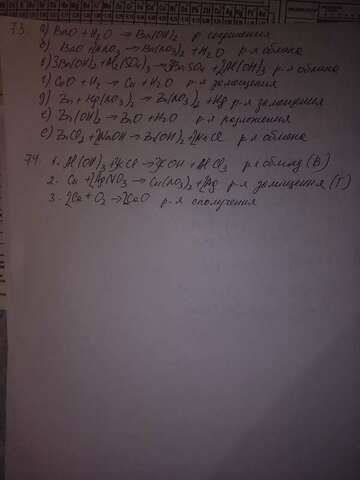 73. а) BaO + H2O → Ba(OH)2 р. сполучення
б) BaO + 2HNO3 → Ba(NO3)2 + H2O р-я обміна
в) 3Ba(OH)2 + Al2(SO4)3 → 3BaSO4 + 2Al(OH)3 р-я обміна
г) CuO + H2 → Cu + H2O р-я заміщення
д) Zn + Hg(NO3)2 → Zn(NO3)2 + Hg р-я заміщення
е) Zn(OH)2 → ZnO + H2O р-я розложения
є) ZnCl2 + 2KOH → Zn(OH)2 + 2KCl р-я обміна
74. 1. Al(OH)3 + 3KCl → 3KOH + AlCl3 р. обміну (В)
2. Cu + 2AgNO3 → Cu(NO3)2 + 2Ag р-я заміщення (Г)
3. 2Ca + O2 → 2CaO р-я сполучення